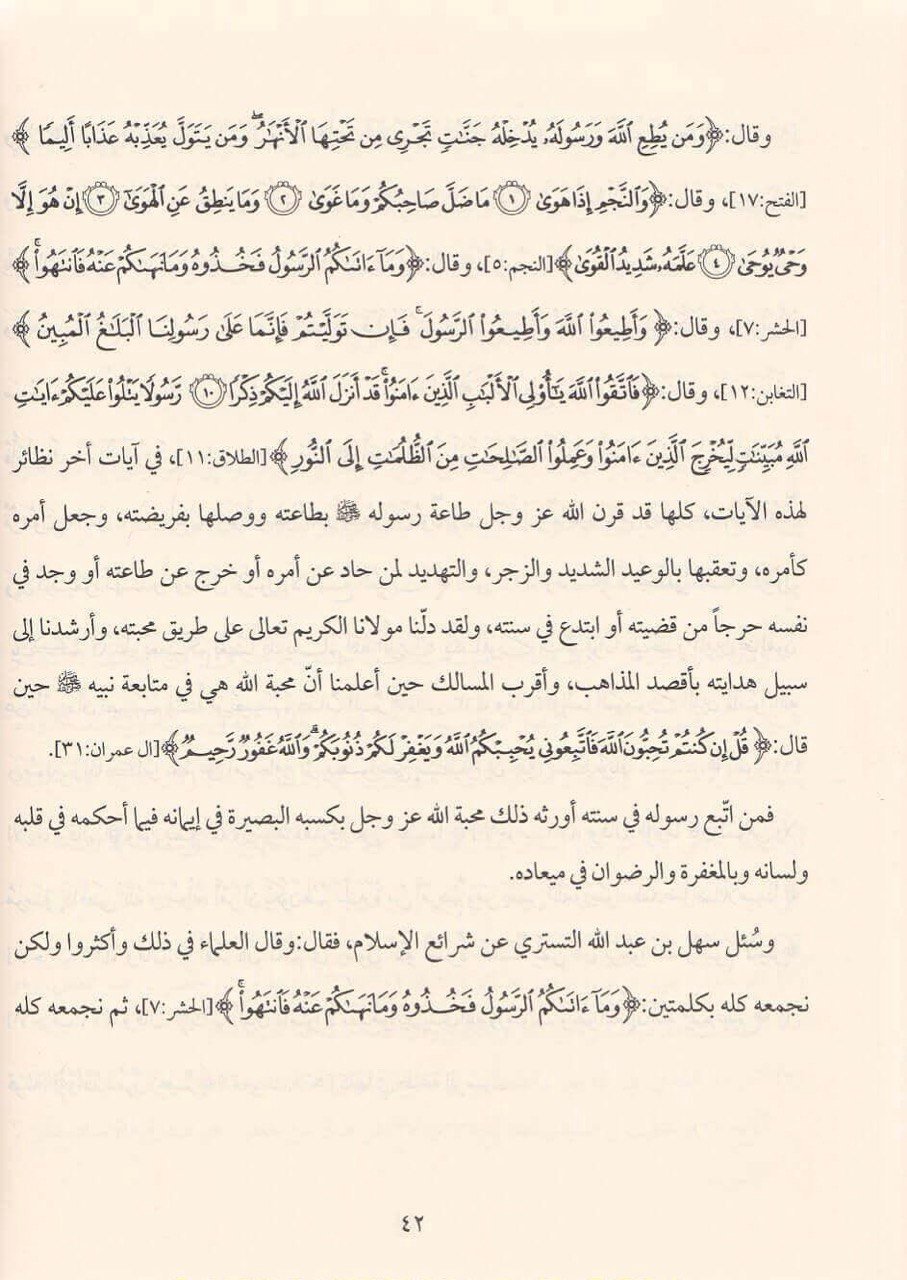 وقال: ﴿وَمَن يُطِعِ ٱللَّهَ وَرَسُولَهُۥ يُدۡخِلۡهُ جَنَّٰتٖ تَجۡرِي مِن تَحۡتِهَا ٱلۡأَنۡهَٰرُۖ وَمَن يَتَوَلَّ يُعَذِّبۡهُ عَذَابًا أَلِيمٗا﴾
[الفتح:١٧]، وقال: ﴿وَٱلنَّجۡمِ إِذَا هَوَىٰ ١ مَا ضَلَّ صَاحِبُكُمۡ وَمَا غَوَىٰ ٢ وَمَا يَنطِقُ عَنِ ٱلۡهَوَىٰٓ ٣ إِنۡ هُوَ إِلَّا
وَحۡيٞ يُوحَىٰ ٤ عَلَّمَهُۥ شَدِيدُ ٱلۡقُوَىٰ﴾ [النجم:٥]، وقال: ﴿وَمَآ ءَاتَىٰكُمُ ٱلرَّسُولُ فَخُذُوهُ وَمَا نَهَىٰكُمۡ عَنۡهُ فَٱنتَهُواْۚ﴾
[الحشر:٧]، وقال: ﴿وَأَطِيعُواْ ٱللَّهَ وَأَطِيعُواْ ٱلرَّسُولَۚ فَإِن تَوَلَّيۡتُمۡ فَإِنَّمَا عَلَىٰ رَسُولِنَا ٱلۡبَلَٰغُ ٱلۡمُبِينُ﴾
[التغابن:١٢]، وقال: ﴿فَٱتَّقُواْ ٱللَّهَ يَٰٓأُوْلِي ٱلۡأَلۡبَٰبِ ٱلَّذِينَ ءَامَنُواْۚ قَدۡ أَنزَلَ ٱللَّهُ إِلَيۡكُمۡ ذِكۡرٗا ١٠ رَّسُولٗا يَتۡلُواْ عَلَيۡكُمۡ ءَايَٰتِ
ٱللَّهِ مُبَيِّنَٰتٖ لِّيُخۡرِجَ ٱلَّذِينَ ءَامَنُواْ وَعَمِلُواْ ٱلصَّٰلِحَٰتِ مِنَ ٱلظُّلُمَٰتِ إِلَى ٱلنُّورِ﴾ [الطلاق:١١]، في آيات أخر نظائر
لهذه الآيات، كلها قد قرن الله عز وجل طاعة رسوله ﷺ بطاعته ووصلها بفريضته، وجعل أمره
كأمره، وتعقبها بالوعيد الشديد والزجر، والتهديد لمن حاد عن أمره أو خرج عن طاعته أو وجد في
نفسه حرجاً من قضيته أو ابتدع في سنته، ولقد دلّنا مولانا الكريم تعالى على طريق محبته، وأرشدنا إلى
سبيل هدايته بأقصد المذاهب، وأقرب المسالك حين أعلمنا أنّ محبة الله هي في متابعة نبيه ﷺ حين
قال: ﴿قُلۡ إِن كُنتُمۡ تُحِبُّونَ ٱللَّهَ فَٱتَّبِعُونِي يُحۡبِبۡكُمُ ٱللَّهُ وَيَغۡفِرۡ لَكُمۡ ذُنُوبَكُمۡۗ وَٱللَّهُ غَفُورٞ رَّحِيمٞ﴾ [ال عمران:٣١].
فمن اتّبع رسوله في سنته أورثه ذلك محبة الله عز وجل بكسبه البصيرة في إيمانه فيما أحكمه في قلبه
ولسانه وبالمغفرة والرضوان في ميعاده.
وسُئل سهل بن عبد الله التستري عن شرائع الإسلام، فقال:وقال العلماء في ذلك وأكثروا ولكن
نجمعه كله بكلمتين: ﴿وَمَآ ءَاتَىٰكُمُ ٱلرَّسُولُ فَخُذُوهُ وَمَا نَهَىٰكُمۡ عَنۡهُ فَٱنتَهُواْۚ﴾ [الحشر:٧]، ثم نجمعه كله
٤٢